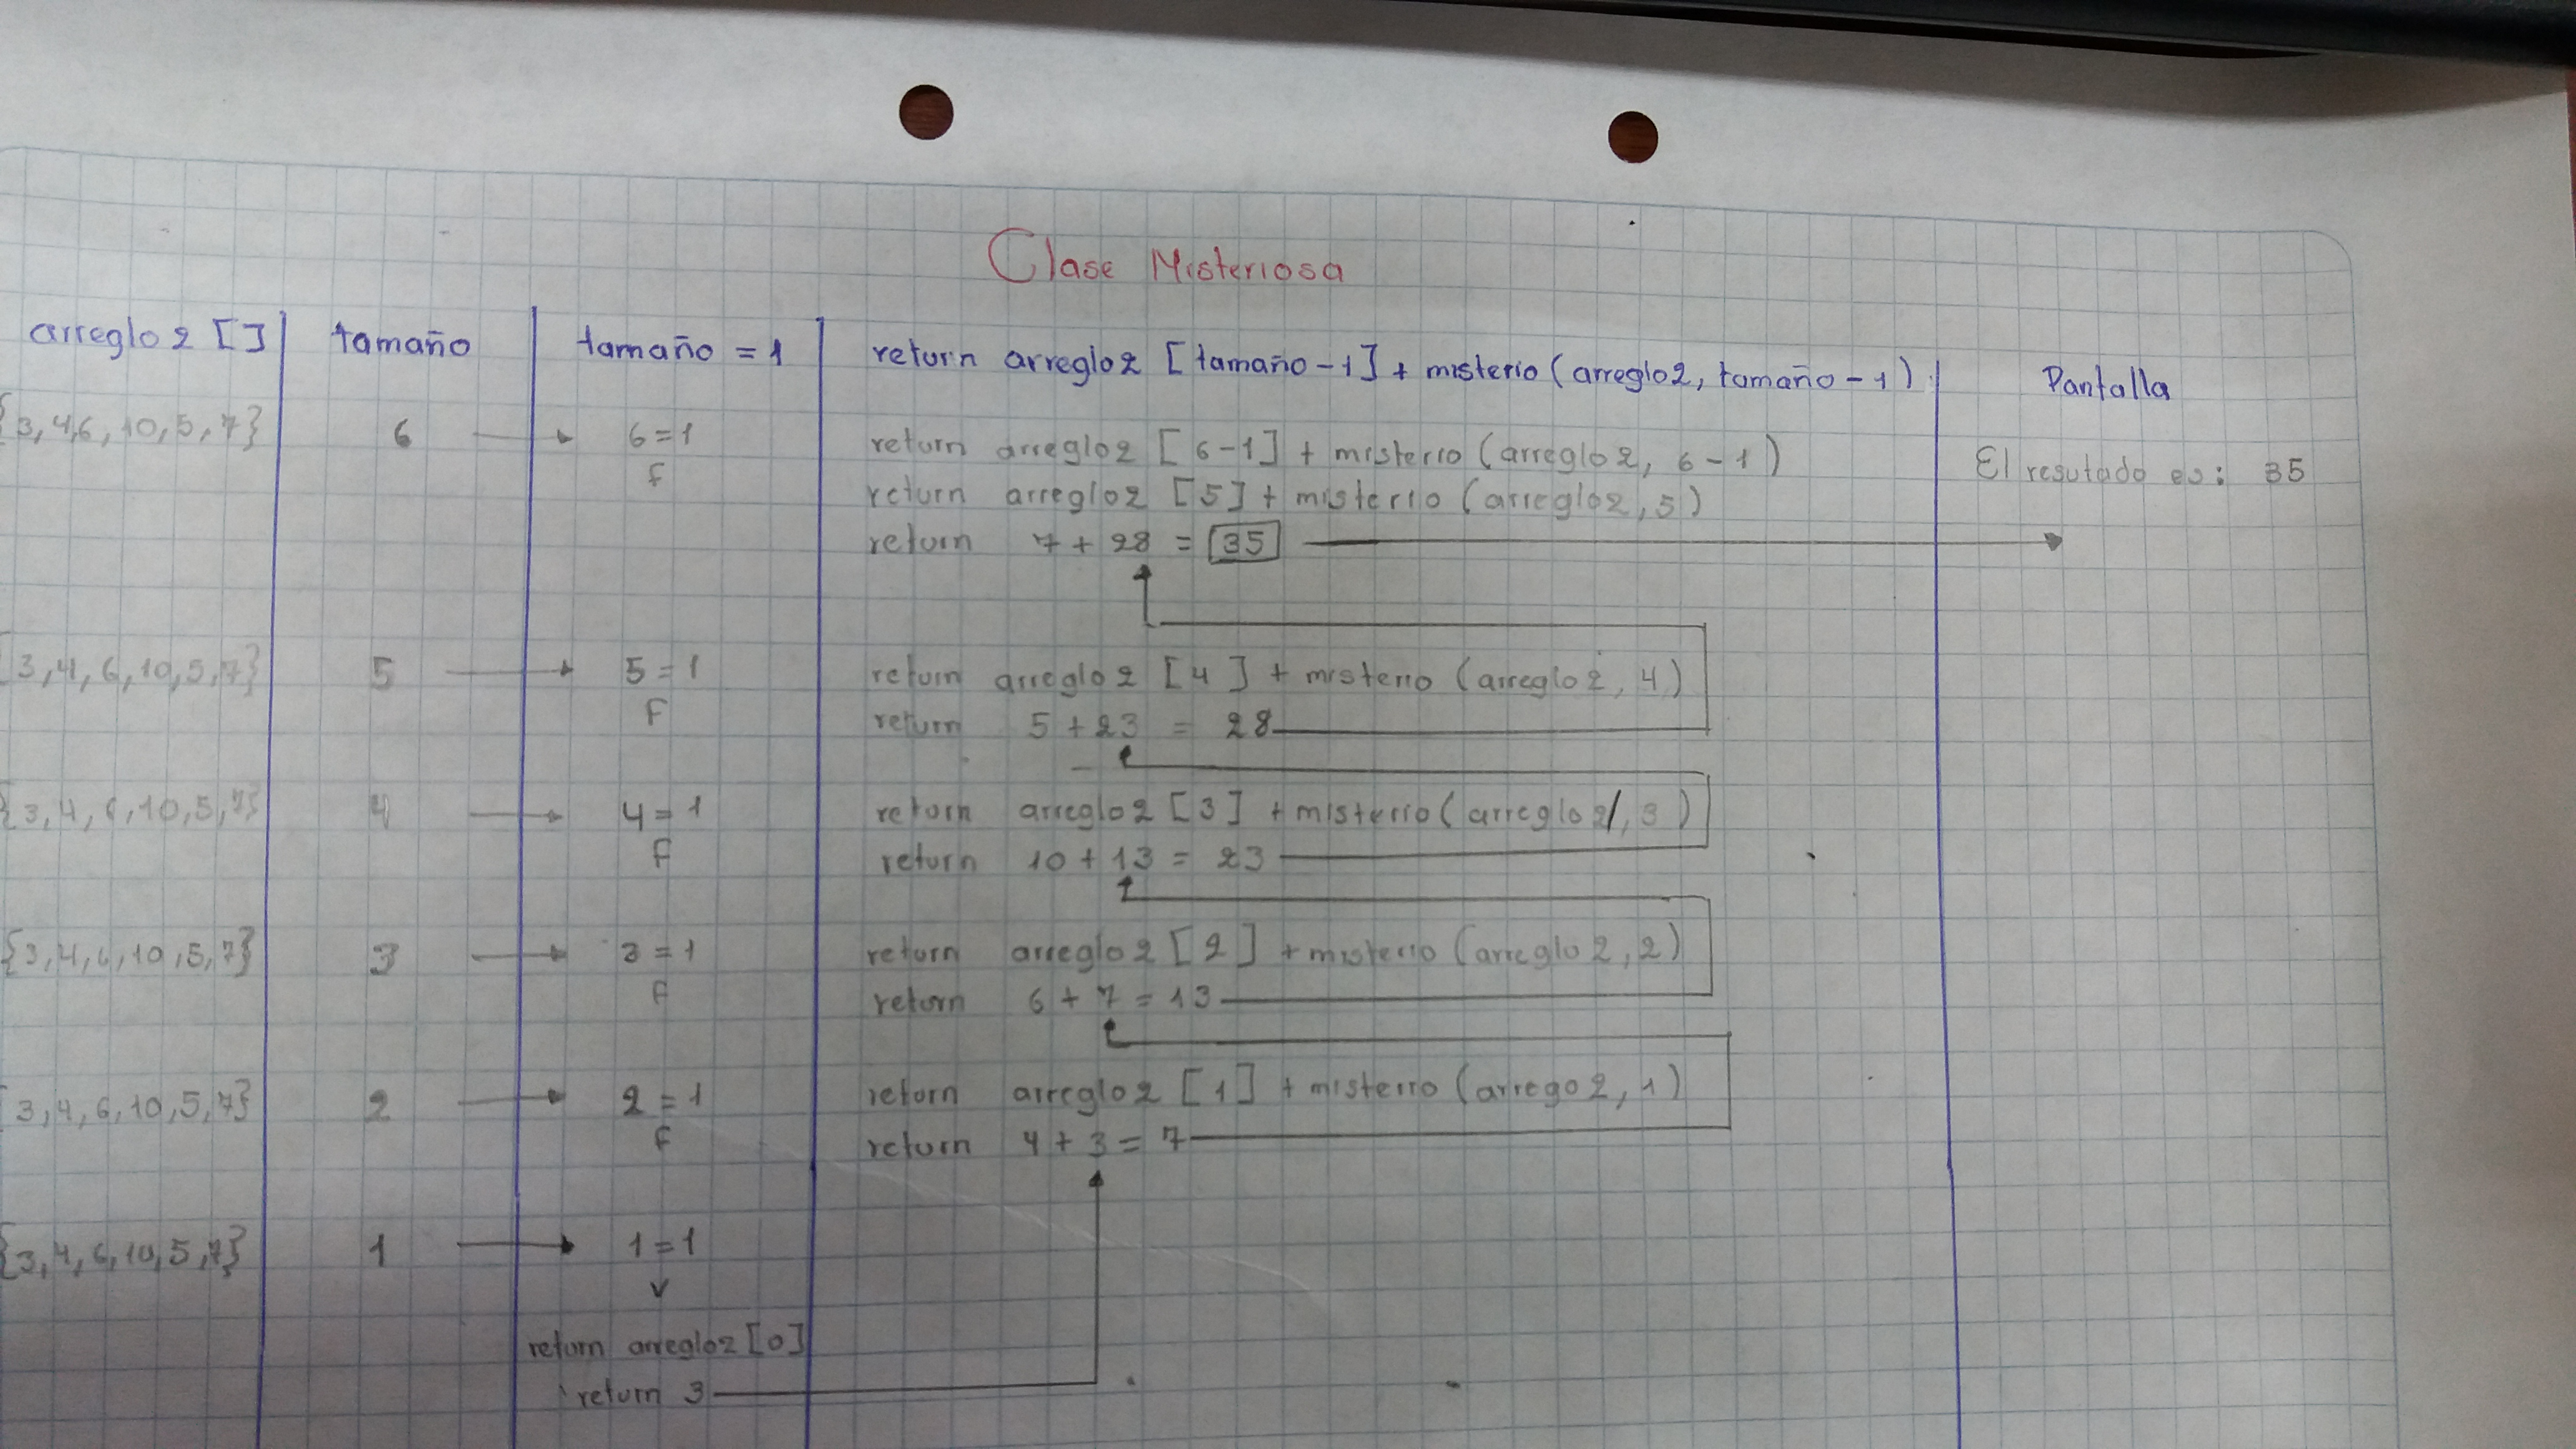 Clase Misteriosa
arreglo2 [] tamaño tamaño = 1 return arreglo2 [tamaño-1] + misterio (arreglo2, tamaño-1) Pantalla
{3,4,6,10,5,7} 6 6=1 return arreglo2 [6-1] + misterio (arreglo2, 6-1) El resutado es: 35
F return arreglo2 [5] + misterio (arreglo2,5)
return 7 + 28 = 35
{3,4,6,10,5,7} 5 5=1 return arreglo2 [4] + misterio (arreglo2, 4)
F return 5 + 23 = 28
{3,4,6,10,5,7} 4 4=1 return arreglo2 [3] + misterio (arreglo2, 3)
F return 10 + 13 = 23
{3,4,6,10,5,7} 3 3=1 return arreglo2 [2] + misterio (arreglo2,2)
F return 6 + 7 = 13
{3,4,6,10,5,7} 2 2=1 return arreglo2 [1] + misterio (arrego2,1)
F return 4 + 3 = 7
{3,4,6,10,5,7} 1 1=1
V
return arreglo2 [0]
return 3